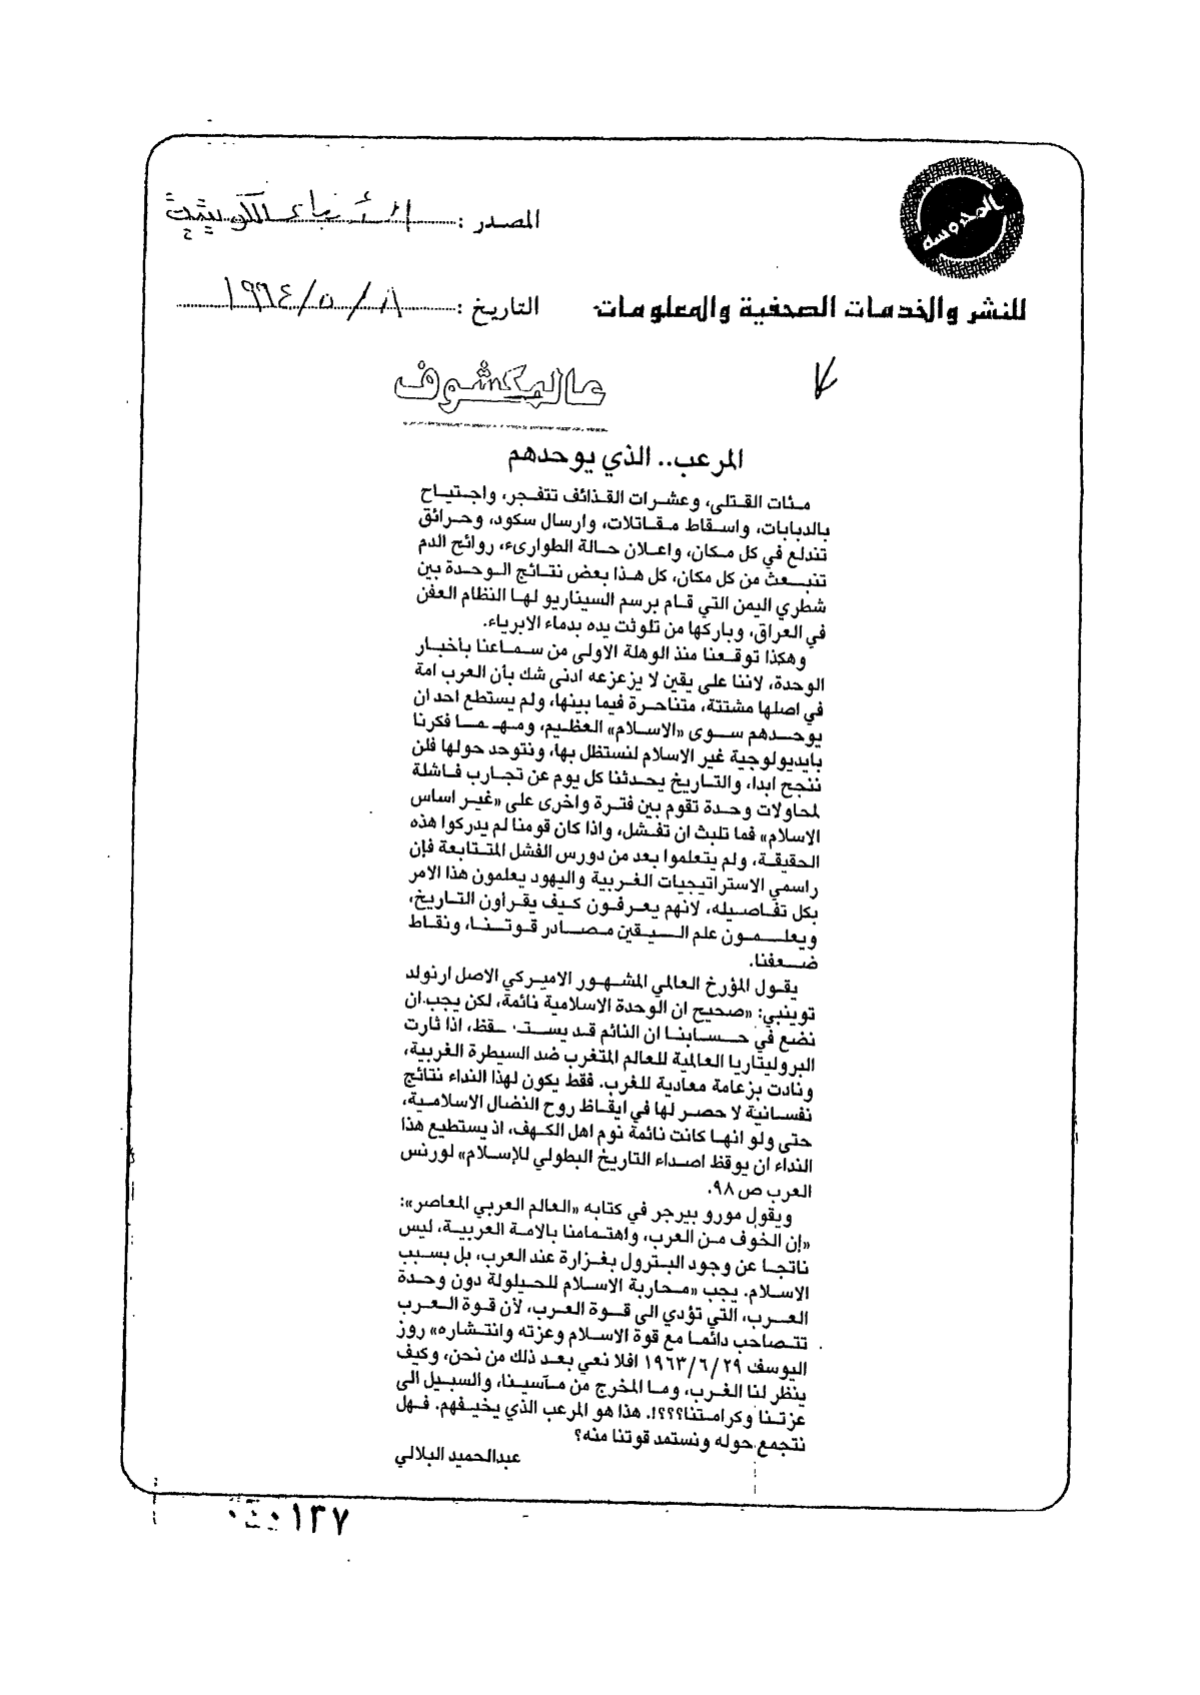 المحروسة
المصدر : الأنباء الكويتية
للنشر والخدمات الصحفية والمعلومات
التاريخ : ٨ / ٥ / ١٩٩٤
عالمكشوف
المرعب.. الذي يوحدهم
مئات القتلى، وعشرات القذائف تتفجر، واجتياح
بالدبابات، واسقاط مقاتلات، وارسال سكود، وحرائق
تندلع في كل مكان، واعلان حالة الطوارىء، روائح الدم
تنبعث من كل مكان، كل هذا بعض نتائج الوحدة بين
شطري اليمن التي قام برسم السيناريو لها النظام العفن
في العراق، وباركها من تلوثت يده بدماء الابرياء.
وهكذا توقعنا منذ الوهلة الاولى من سماعنا بأخبار
الوحدة، لاننا على يقين لا يزعزعه ادنى شك بأن العرب امة
في اصلها مشتتة، متناحرة فيما بينها، ولم يستطع احد ان
يوحدهم سوى «الاسلام» العظيم، ومهما فكرنا
بايديولوجية غير الاسلام لنستظل بها، ونتوحد حولها فلن
ننجح ابدا، والتاريخ يحدثنا كل يوم عن تجارب فاشلة
لمحاولات وحدة تقوم بين فترة واخرى على «غير اساس
الاسلام» فما تلبث ان تفشل، واذا كان قومنا لم يدركوا هذه
الحقيقة، ولم يتعلموا بعد من دورس الفشل المتتابعة فإن
راسمي الاستراتيجيات الغربية واليهود يعلمون هذا الامر
بكل تفاصيله، لانهم يعرفون كيف يقراون التاريخ،
ويعلمون علم اليقين مصادر قوتنا، ونقاط
ضعفنا.
يقول المؤرخ العالمي المشهور الاميركي الاصل ارنولد
توينبي: «صحيح ان الوحدة الاسلامية نائمة، لكن يجب ان
نضع في حسابنا ان النائم قد يستيقظ، اذا ثارت
البروليتاريا العالمية للعالم المتغرب ضد السيطرة الغربية،
ونادت بزعامة معادية للغرب. فقط يكون لهذا النداء نتائج
نفسانية لا حصر لها في ايقاظ روح النضال الاسلامية،
حتى ولو انها كانت نائمة نوم اهل الكهف، اذ يستطيع هذا
النداء ان يوقظ اصداء التاريخ البطولي للإسلام» لورنس
العرب ص ٩٨.
ويقول مورو بيرجر في كتابه «العالم العربي المعاصر»:
«إن الخوف من العرب، واهتمامنا بالامة العربية، ليس
ناتجا عن وجود البترول بغزارة عند العرب، بل بسبب
الاسلام. يجب «محاربة الاسلام للحيلولة دون وحدة
العرب، التي تؤدي الى قوة العرب، لأن قوة العرب
تتصاحب دائما مع قوة الاسلام وعزته وانتشاره» روز
اليوسف ٢٩/٦/١٩٦٣ افلا نعي بعد ذلك من نحن، وكيف
ينظر لنا الغرب، وما المخرج من مآسينا، والسبيل الى
عزتنا وكرامتنا؟؟؟!. هذا هو المرعب الذي يخيفهم. فهل
نتجمع حوله ونستمد قوتنا منه؟
عبدالحميد البلالي